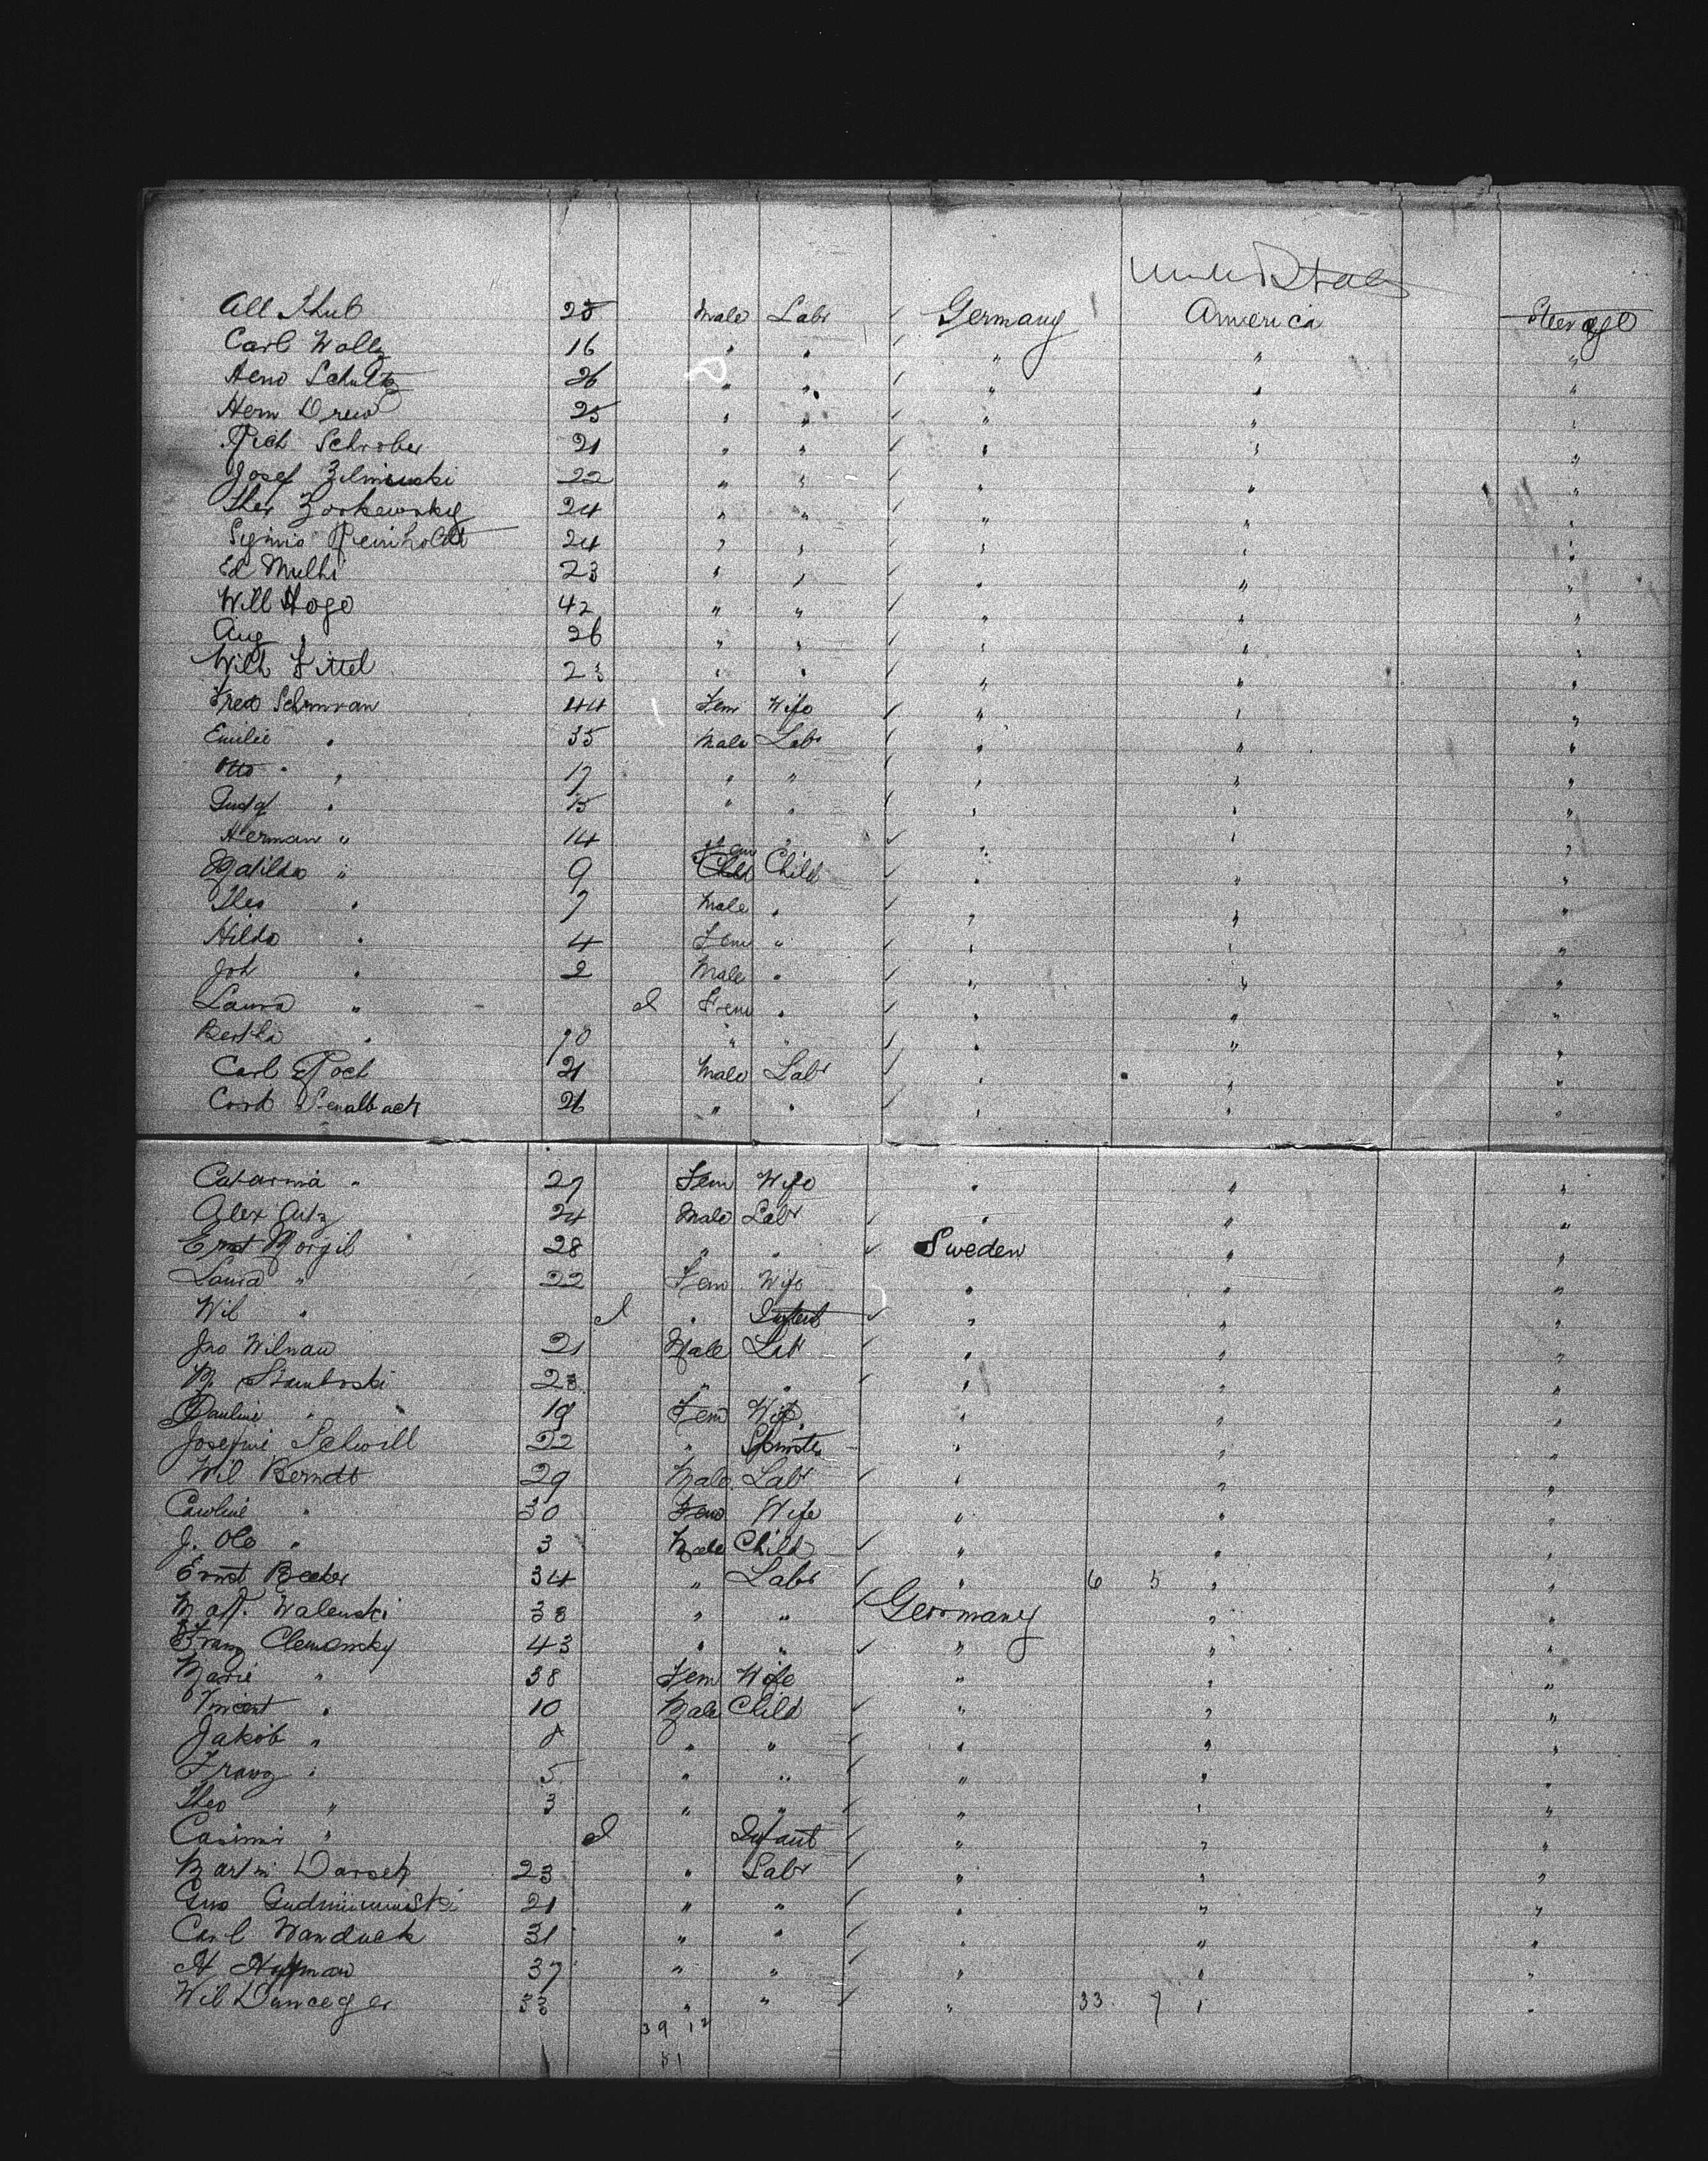 United States
All Thub 25 Male Labr Germany America Steerage
Carl Wolly 16 " " " " "
Schultz 26 " " " " "
Herm Drew 25 " " " " "
Rich Schrober 21 " " " " "
Josef 22 " " " " "
Ther 24 " " " " "
Reinholdt 24 " " " " "
Ed Mulhi 23 " " " " "
Will Hogo 42 " " " " "
Aug " 26 " " " " "
Wilh Fittel 23 " " " " "
Fred 44 Fem Wife " " "
Emilie " 35 Male Labr " " "
Otto " 17 " " " " "
" 15 " " " " "
Herman " 14 " " " " "
Matilda " 9 Fem Child " " "
Theo " 7 Male " " " "
Hilda " 4 Fem " " " "
Joh " 2 Male " " " "
Laura " I Fem " " " "
Bertha " " " " " "
Carl Roch 21 Male Labr " " "
26 " " " " "
Catarina " 27 Fem Wife " " "
Alex Artz 24 Male Labr " " "
Ernst Morgil 28 " " Sweden " "
Laura " 22 Fem Wife " " "
Wil " I " Infant " " "
Jno Wilnaw 21 Male Labr " " "
M. Stamboski 23 " " " " "
Pauline " 19 Fem Wife " " "
Josefine Schvill 22 " Spinster " " "
Wil Berndt 29 Male Labr " " "
Caroline " 30 Fem Wife " " "
J. Olo " 3 Male Child " " "
Ernst Becker 34 " Labr " 6 5 " "
Walenski 38 " " Germany " "
Franz Clemonsky 43 " " " " "
Marie " 38 Fem Wife " " "
Vincent " 10 Male Child " " "
Jakob " 8 " " " " "
Franz " 5 " " " " "
Theo " 3 " " " " "
Casimir " I Infant " " "
Martin Darsch 23 " Labr " " "
21 " " " " "
Carl Wanduck 31 " " " " "
H Hyman 37 " " " " "
Wil Danceger 33 " " " 33 7 " "
39 12
51